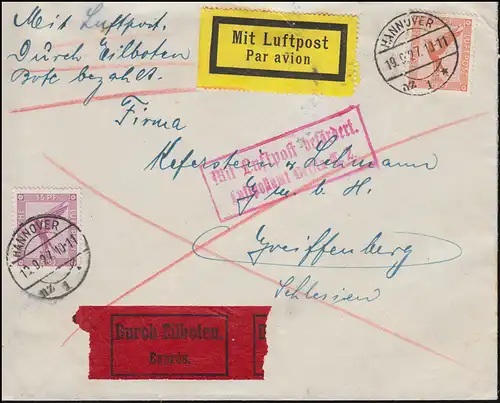 Mit Luftpost.
Durch Eilboten
Bote bezahlt.
Mit Luftpost
Par avion
HANNOVER
19.9.27.10-11
*
1
Firma
Keferstein u. Lehmann
G. m. b. H.
Greiffenberg
Schlesien
Mit Luftpost befördert.
Luftpostamt
15 PF
HANNOVER
19.9.27.10-11
1
Durch Eilboten.
Exprès.